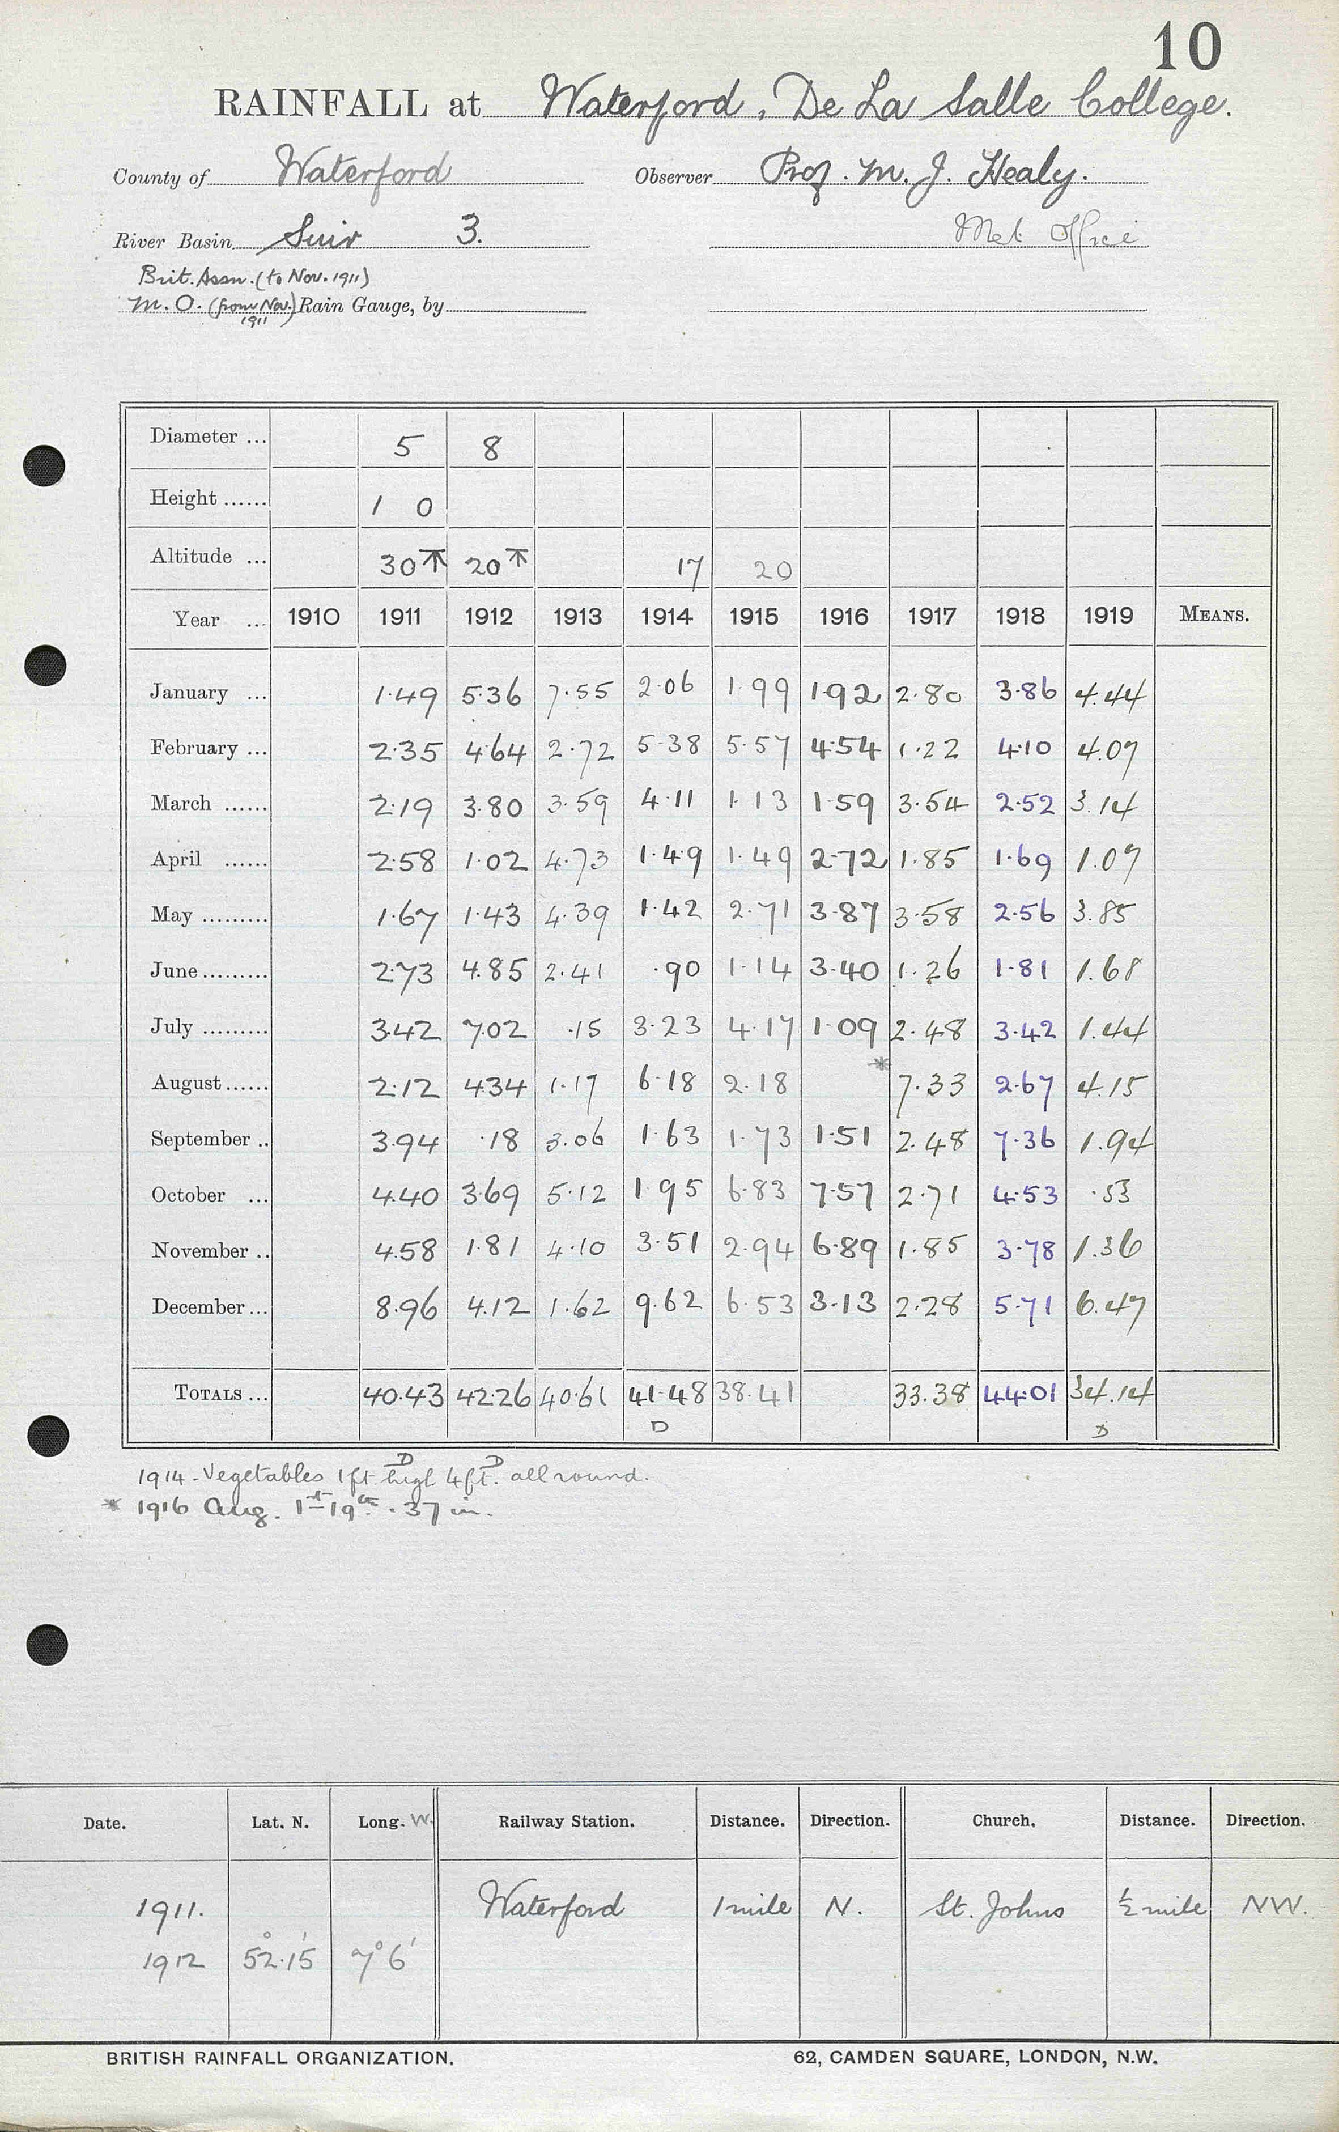 10
RAINFALL at Waterford, De La Salle College.
County of Waterford Observer Prof. M. J. Healy.
River Basin Suir 3. Met Office
Brit. Assn. (to Nov. 1911)
M.O. (from Nov. 1911) Rain Gauge, by
Diameter ... 5 8
Height ...... 1 0
Altitude ... 30 20 17 20
Year ... 1910 1911 1912 1913 1914 1915 1916 1917 1918 1919 MEANS.
January ... 1.49 5.36 7.55 2.06 1.99 1.92 2.80 3.86 4.44
February ... 2.35 4.64 2.72 5.38 5.57 4.54 1.22 4.10 4.07
March ...... 2.19 3.80 3.59 4.11 1.13 1.59 3.54 2.52 3.14
April ...... 2.58 1.02 4.73 1.49 1.49 2.72 1.85 1.69 1.07
May ......... 1.67 1.43 4.39 1.42 2.71 3.87 3.58 2.56 3.85
June ......... 2.73 4.85 2.41 .90 1.14 3.40 1.26 1.81 1.68
July ......... 3.42 7.02 .15 3.23 4.17 1.09 2.48 3.42 1.44
August ...... 2.12 4.34 1.17 6.18 2.18 * 7.33 2.67 4.15
September .. 3.94 .18 3.06 1.63 1.73 1.51 2.48 7.36 1.94
October ... 4.40 3.69 5.12 1.95 6.83 7.57 2.71 4.53 .53
November .. 4.58 1.81 4.10 3.51 2.94 6.89 1.85 3.78 1.36
December ... 8.96 4.12 1.62 9.62 6.53 3.13 2.28 5.71 6.47
TOTALS ... 40.43 42.26 40.61 41.48 38.41 33.38 44.01 34.14
D D
1914 - Vegetables 1ft high 4ft. all round.
* 1916 Aug. 1st-19th .37 in.
Date. Lat. N. Long. W. Railway Station. Distance. Direction. Church. Distance. Direction.
1911. Waterford 1 mile N. St. Johns ½ mile NW.
1912 52°15' 7°6'
BRITISH RAINFALL ORGANIZATION. 62, CAMDEN SQUARE, LONDON, N.W.